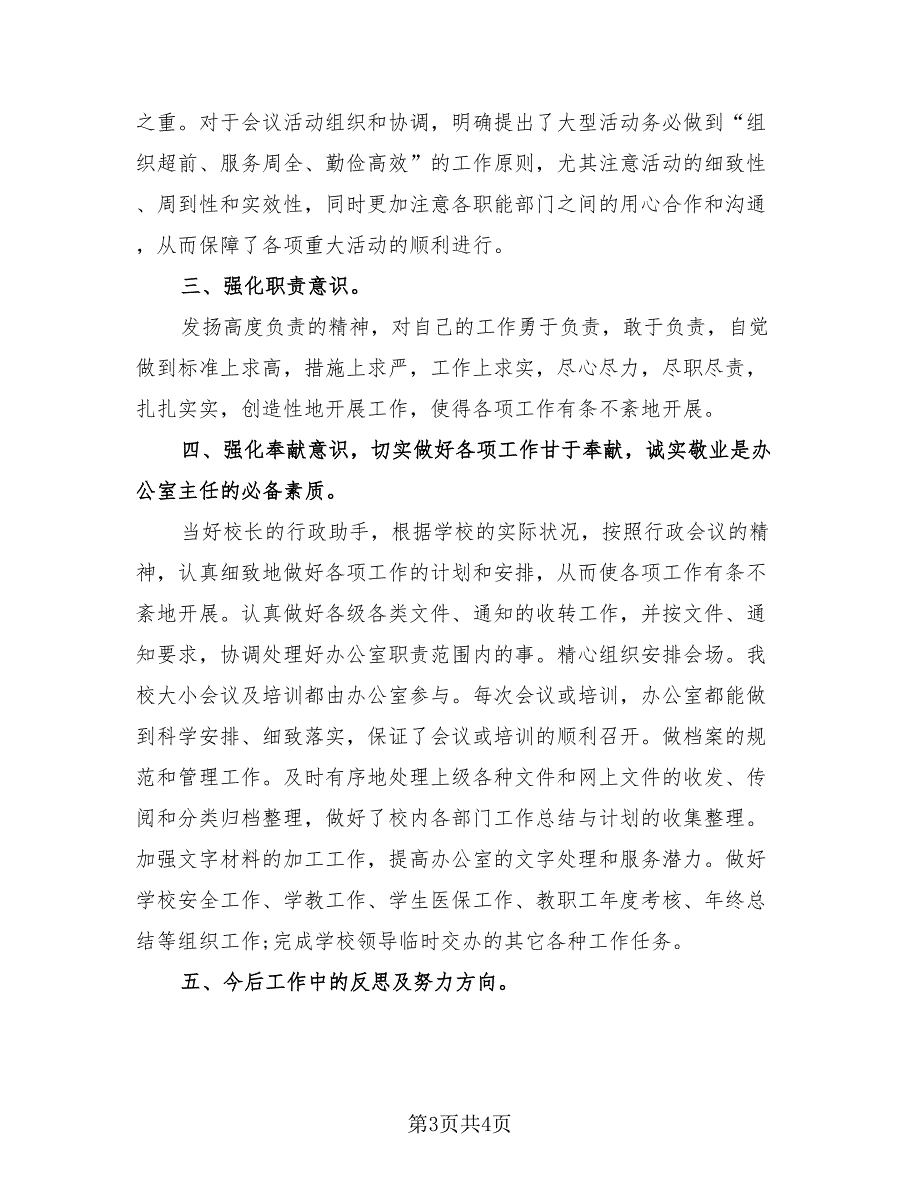 之重。对于会议活动组织和协调，明确提出了大型活动务必做到“组
织超前、服务周全、勤俭高效”的工作原则，尤其注意活动的细致性
、周到性和实效性，同时更加注意各职能部门之间的用心合作和沟通
，从而保障了各项重大活动的顺利进行。
三、强化职责意识。
发扬高度负责的精神，对自己的工作勇于负责，敢于负责，自觉
做到标准上求高，措施上求严，工作上求实，尽心尽力，尽职尽责，
扎扎实实，创造性地开展工作，使得各项工作有条不紊地开展。
四、强化奉献意识，切实做好各项工作甘于奉献，诚实敬业是办
公室主任的必备素质。
当好校长的行政助手，根据学校的实际状况，按照行政会议的精
神，认真细致地做好各项工作的计划和安排，从而使各项工作有条不
紊地开展。认真做好各级各类文件、通知的收转工作，并按文件、通
知要求，协调处理好办公室职责范围内的事。精心组织安排会场。我
校大小会议及培训都由办公室参与。每次会议或培训，办公室都能做
到科学安排、细致落实，保证了会议或培训的顺利召开。做档案的规
范和管理工作。及时有序地处理上级各种文件和网上文件的收发、传
阅和分类归档整理，做好了校内各部门工作总结与计划的收集整理。
加强文字材料的加工工作，提高办公室的文字处理和服务潜力。做好
学校安全工作、学教工作、学生医保工作、教职工年度考核、年终总
结等组织工作;完成学校领导临时交办的其它各种工作任务。
五、今后工作中的反思及努力方向。
第3页共4页